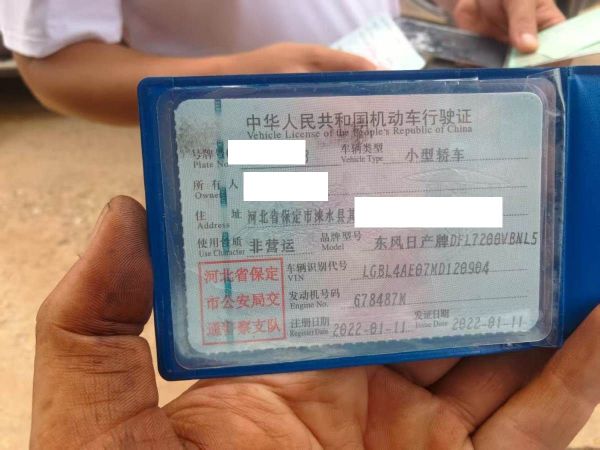 中华人民共和国机动车行驶证
Vehicle License of the People's Republic of China
号牌
Plate No.
车辆类型
Vehicle Type
小型轿车
所有人
Owner
住 址
Address
河北省保定市涞水县其
使用性质
Use Character
非营运
品牌型号
Model
东风日产牌DFL7200VBNL5
河北省保定
市公安局交
通警察支队
车辆识别代号
VIN
LGBL4AE07MD120904
发动机号码
Engine No.
678487M
注册日期
Register Date
2022-01-11
发证日期
Issue Date
2022-01-11